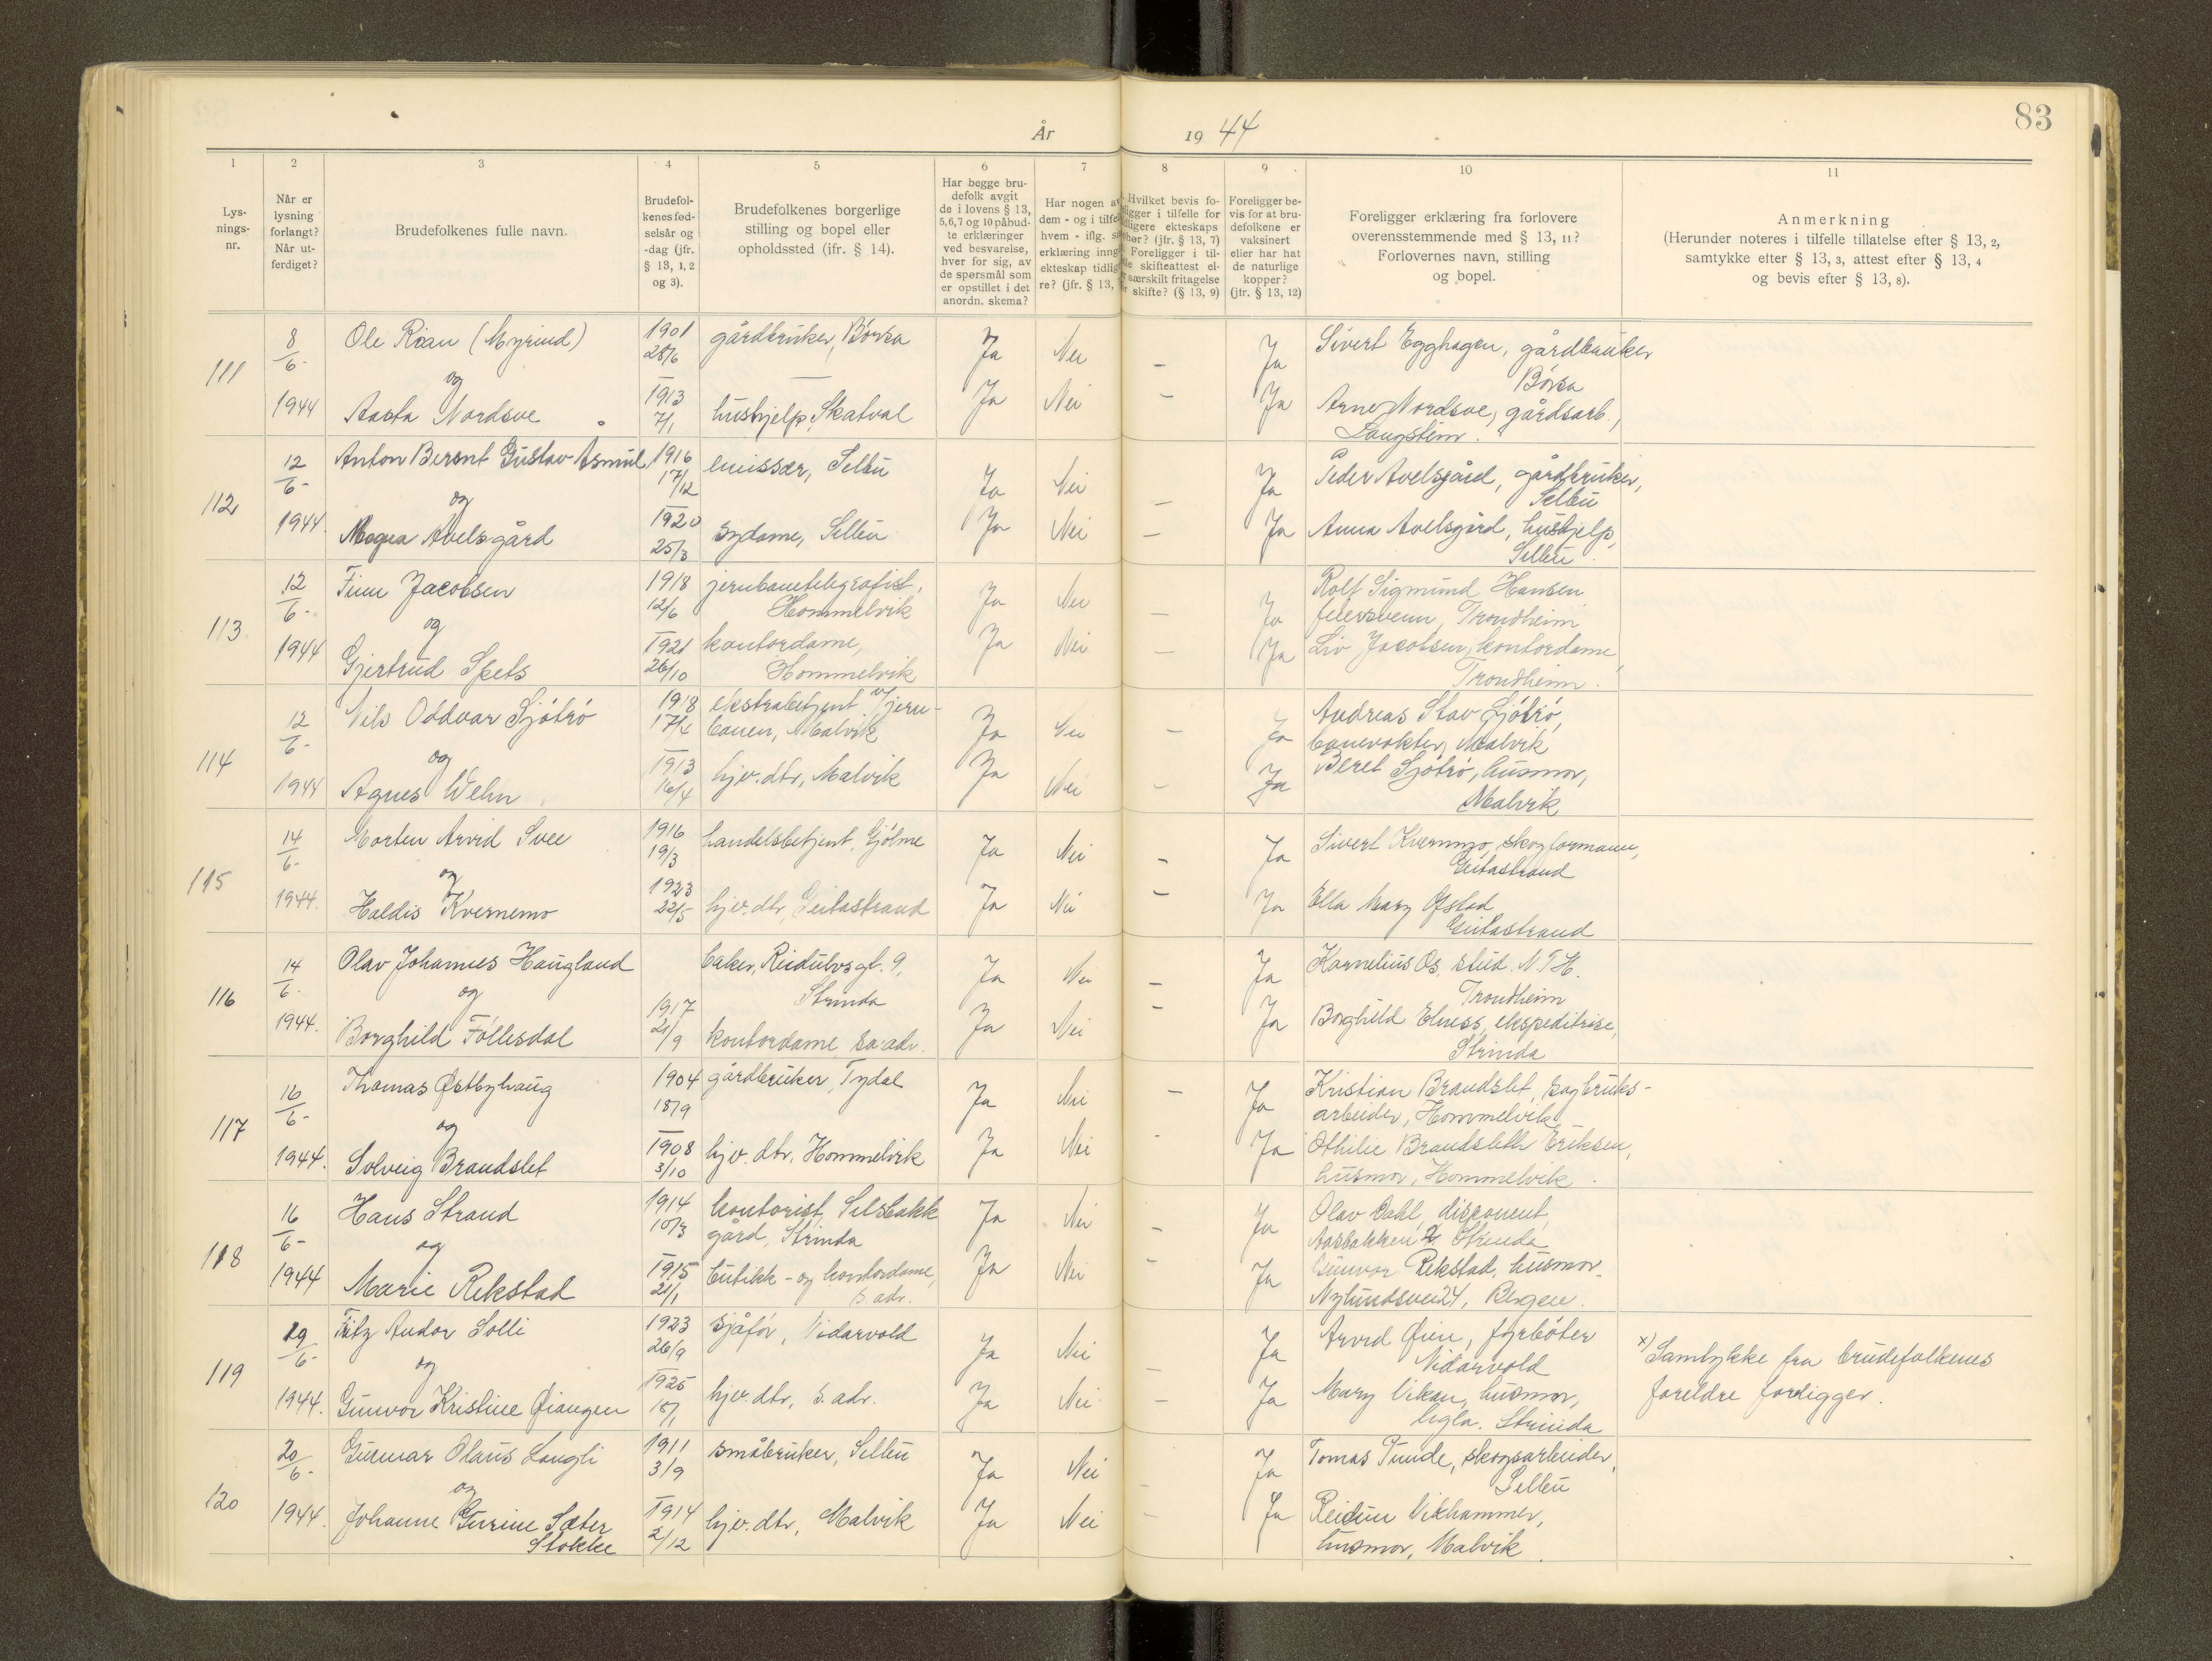 83
År 1944
1 2 3 4 5 6 7 8 9 10 11
Lys-
nings-
nr.
Når er
lysning
forlangt?
Når ut-
ferdiget?
Brudefolkenes fulle navn.
Brudefol-
kenes fød-
selsår og
-dag (jfr.
§ 13, 1, 2
og 3).
Brudefolkenes borgerlige
stilling og bopel eller
opholdssted (jfr. § 14).
Har begge bru-
defolk avgit
de i lovens § 13,
5,6,7 og 10 påbud-
te erklæringer
ved besvarelse,
hver for sig, av
de spørsmål som
er opstillet i det
anordn. skema?
Har nogen a
dem - og i tilfe
hvem - iflg. s
erklæring inng
ekteskap tidlig
re? (jfr. § 13,
Hvilket bevis fo-
ligger i tilfelle for
dligere ekteskaps
phør? (jfr. § 13, 7)
Foreligger i til-
skifteattest el-
særskilt fritagelse
skifte? (§ 13, 9)
Foreligger be-
vis for at bru-
defolkene er
vaksinert
eller har hat
de naturlige
kopper?
(jfr. § 13, 12)
Foreligger erklæring fra forlovere
overensstemmende med § 13, 11?
Forlovernes navn, stilling
og bopel.
Anmerkning
(Herunder noteres i tilfelle tillatelse efter § 13, 2,
samtykke efter § 13, 3, attest efter § 13, 4
og bevis efter § 13, 8).
111
8/6-
1944
Ole Rian (Myrind)
og
Aasta Nordsve
1901
28/6
1913
7/1
gårdbruker, Børsa
hushjelp, Skatval
Ja Nei - Ja
Ja Nei - Ja
Sivert Egghagen, gårdbruker
Børsa
Arne Nordsve, gårdsarb.,
Langstein.
112
12/6-
1944.
Anton Berent Gustav Asmul
og
Magna Avelsgård
1916
17/12
1920
25/3
emissær, Selbu
sydame, Selbu
Ja Nei - Ja
Ja Nei - Ja
Peder Avelsgård, gårdbruker,
Selbu
Anna Avelsgård, hushjelp,
Selbu.
113
12/6-
1944
Finn Jacobsen
og
Gjertrud Spets
1918
12/6
1921
26/10
jernbanetelegrafist,
Hommelvik
kontordame,
Hommelvik
Ja Nei - Ja
Ja Nei - Ja
Rolf Sigmund Hansen
feiersvenn, Trondheim
Liv Jacobsen, kontordame,
Trondheim.
114
12/6-
1944
Nils Oddvar Sjøbrø
og
Agnes Wehn
1918
17/4
1913
16/4
ekstrabetjent v/jern-
banen, Malvik
hjv. dtr, Malvik
Ja Nei - Ja
Ja Nei - Ja
Andreas Stav Sjøbrø,
banevokter, Malvik
Beret Sjøbrø, husmor,
Malvik
115
14/6-
1944.
Morten Arvid Svee
og
Haldis Kvernemo
1916
19/3
1923
22/5
handelsbetjent, Gjølme
hjv. dtr, Geitastrand
Ja Nei - Ja
Ja Nei - Ja
Sivert Kvernmo, skogformann,
Geitastrand
Ella Mary Ofstad
Geitastrand
116
14/6.
1944.
Olav Johannes Haugland
og
Borghild Føllesdal
1917
21/9
baker, Reidulvsgt. 9,
Strinda
kontordame sa: adr.
Ja Nei - Ja
Ja Nei - Ja
Kornelius Os, stud. N.T.H.
Trondheim
Borghild Elness, ekspeditrise,
Strinda
117
16/6-
1944.
Thomas Østbyhaug
og
Solveig Brandslet
1904
18/9
1908
3/10
gårdbruker, Tydal
hjv. dtr. Hommelvik
Ja Nei - Ja
Ja Nei - Ja
Kristian Brandslet, sagbruks-
arbeider, Hommelvik
Othilie Brandsleth Eriksen,
husmor, Hommelvik.
118
16/6-
1944
Hans Strand
og
Marie Rekstad
1914
10/3
1915
21/1
kontorist, Selsbakk
gård, Strinda
butikk- og kontordame,
s. adr.
Ja Nei - Ja
Ja Nei - Ja
Olav Dahl, disponent,
Aasbakken 2 Strinda
Gunvor Rekstad, husmor,
Nylundsvei 24, Bergen.
119
19/6-
1944.
Fritz Andor Solli
og
Gunvor Kristine Øiangen
1923
26/9
1925
18/1
sjåfør, Nidarvold
hjv. dtr, s. adr.
Ja Nei - Ja
Ja Nei - Ja
Arvid Øien, fyrbøter
Nidarvold
Mary Vikan, husmor,
Ugla. Strinda
x) Samtykke fra brudefolkenes
foreldre foreligger.
120
20/6-
1944.
Gunnar Olaus Langli
og
Johanne Gurine Sæter
Stokke
1911
3/9
1914
2/12
småbruker, Selbu
hjv. dtr, Malvik
Ja Nei - Ja
Ja Nei - Ja
Tomas Tunde, skogsarbeider,
Selbu
Reidun Vikhammer,
husmor, Malvik.